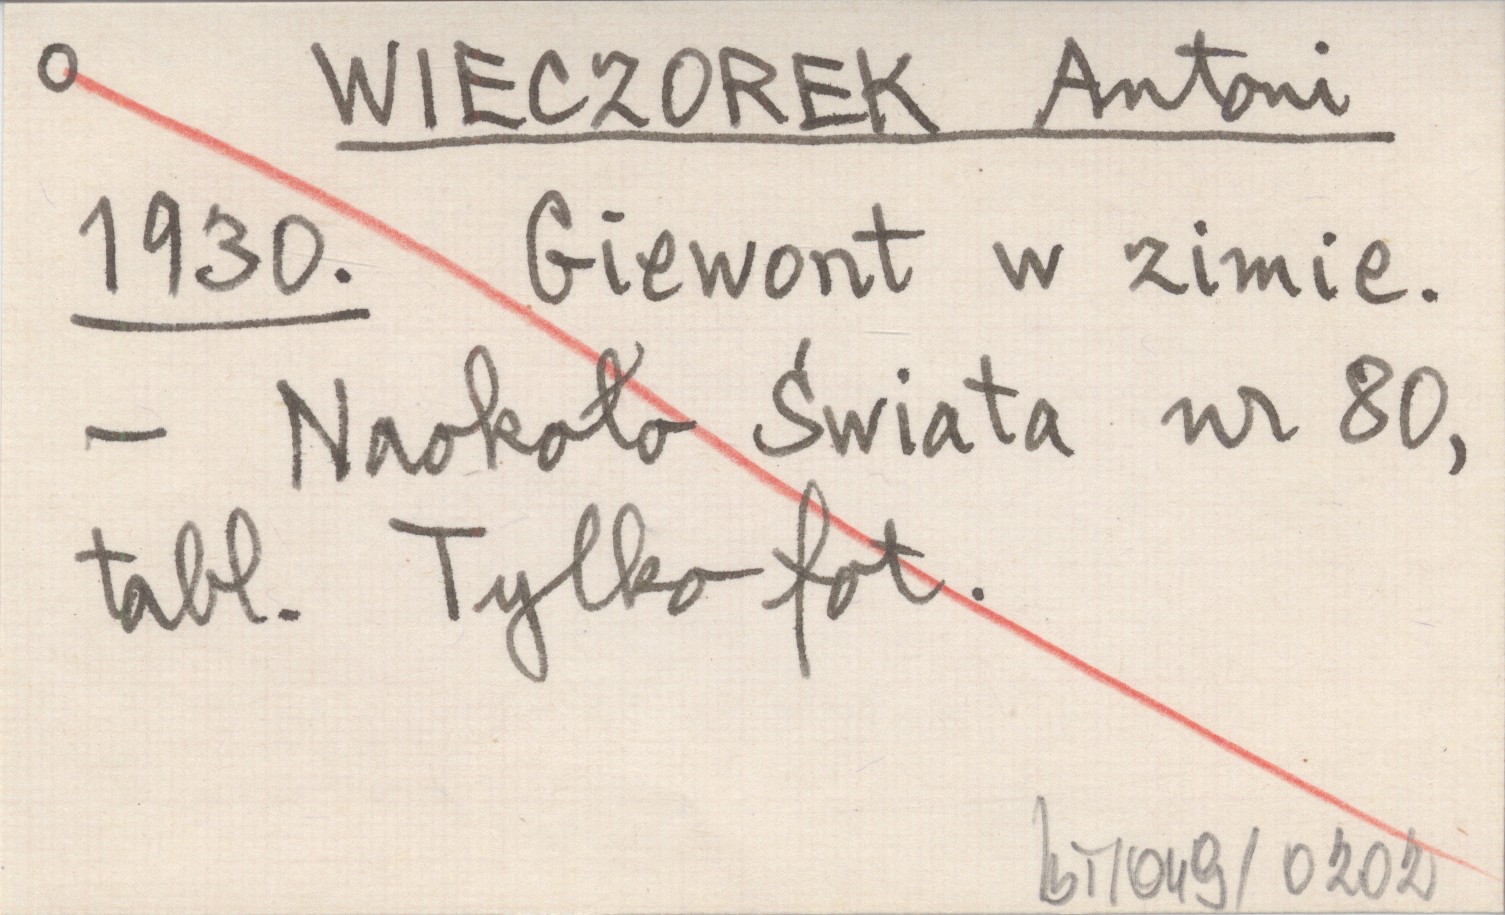 O WIECZOREK Antoni
1930. Giewont w zimie.
– Naokoło Świata nr 80,
tabl. Tylko fot.
/049/0202